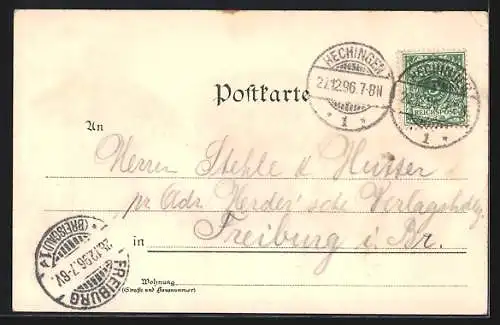 HECHINGEN
27.12.96.7-8N
* 1 *
HECHINGEN
REICHSPOST
1 *
Postkarte
An
Herren Stehle & Hutter
pr Adr. Herder'sche Verlagshdlg.
in Freiburg i. Br.
Wohnung
(Straße und Hausnummer)
* (BREISGAU) 1 *
12.96.7-8V.
FREIBURG